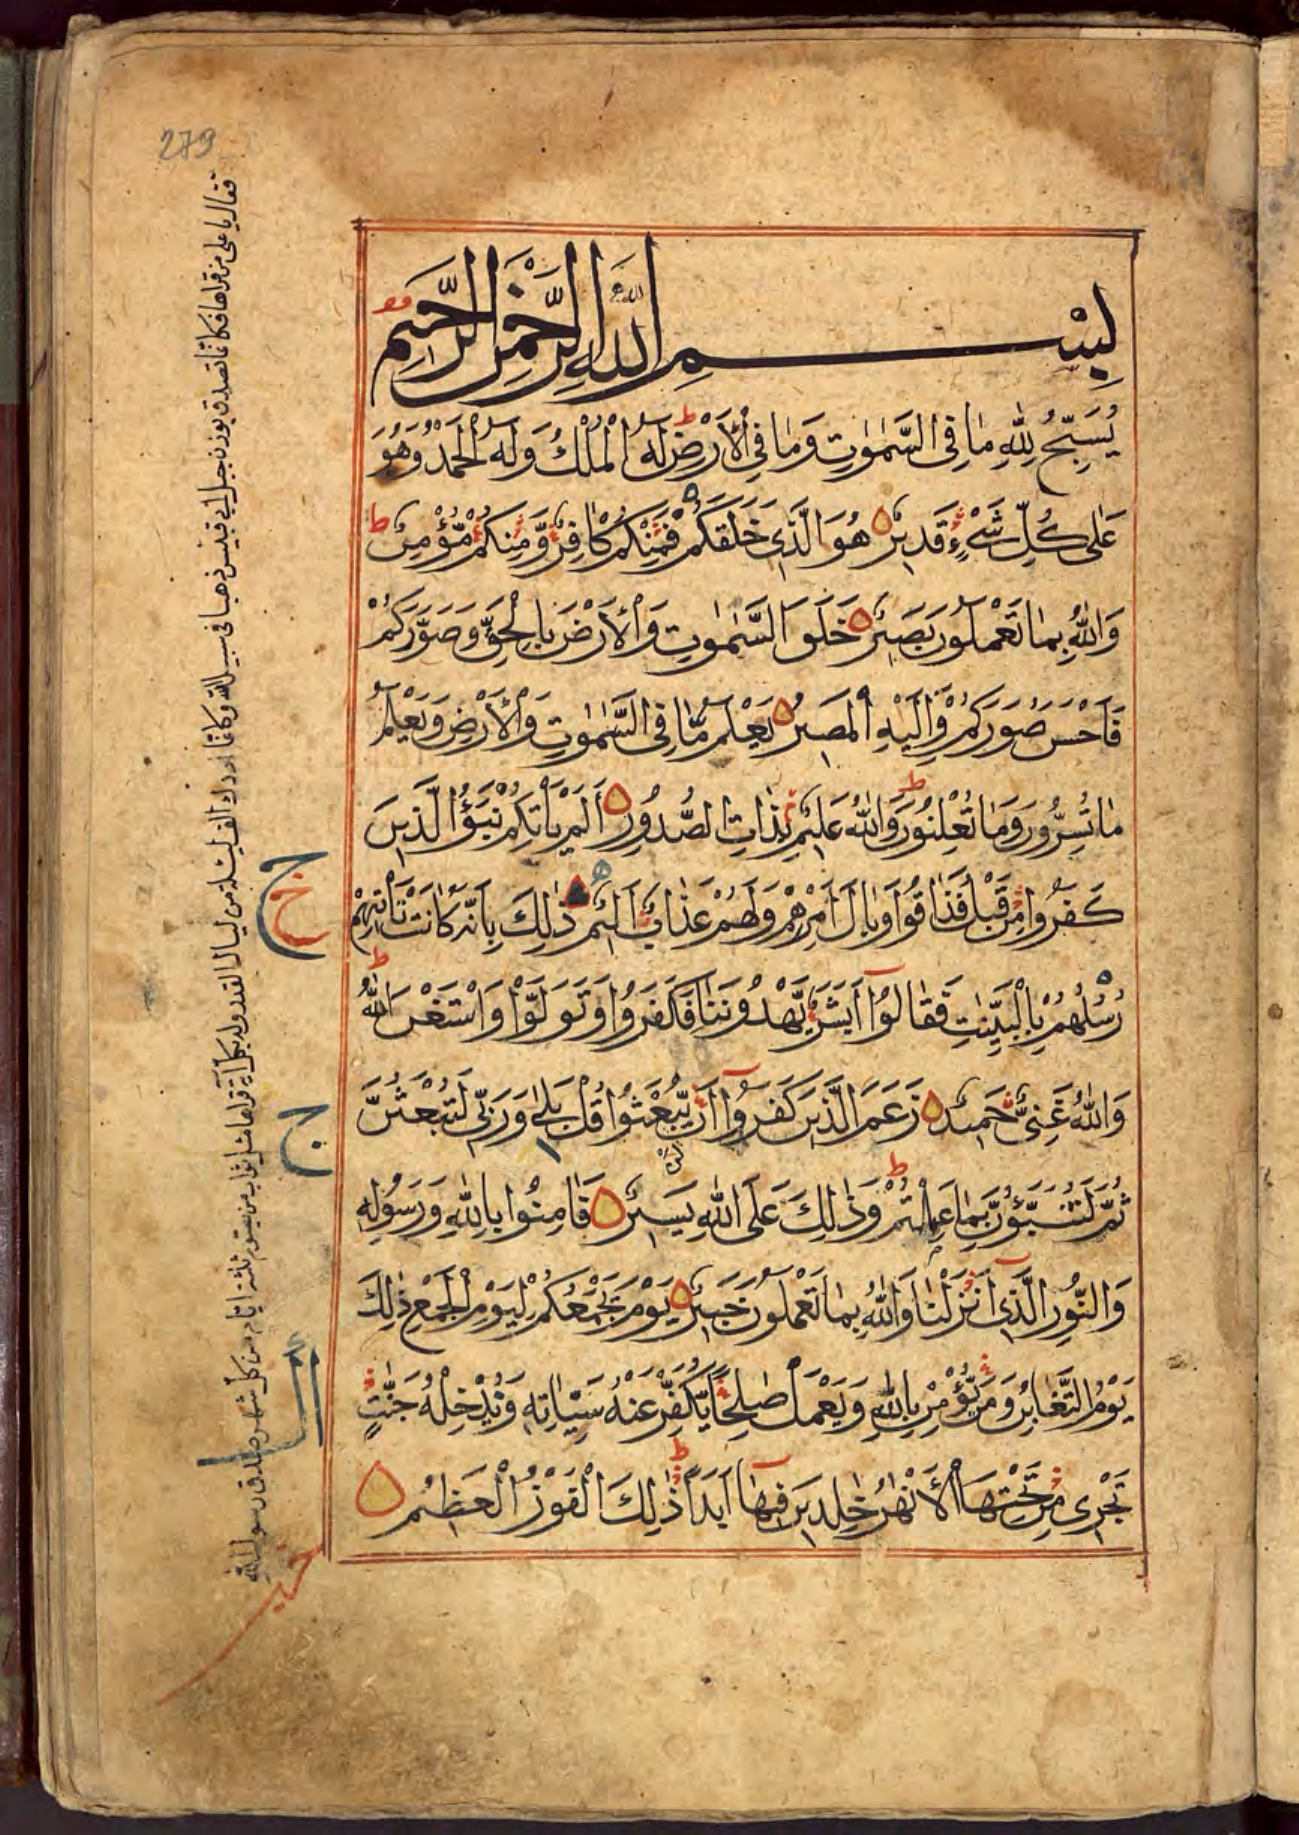 279
بِسْمِ اللّٰهِ الرَّحْمٰنِ الرَّحِيْمِ
يُسَبِّحُ لِلّٰهِ مَا فِى السَّمٰوٰتِ وَمَا فِى الْاَرْضِ لَهُ الْمُلْكُ وَلَهُ الْحَمْدُ وَهُوَ
عَلٰى كُلِّ شَىْءٍ قَدِيْرٌ هُوَ الَّذِى خَلَقَكُمْ فَمِنْكُمْ كَافِرٌ وَّمِنْكُمْ مُّؤْمِنٌ ط
وَاللّٰهُ بِمَا تَعْمَلُوْنَ بَصِيْرٌ خَلَقَ السَّمٰوٰتِ وَالْاَرْضَ بِالْحَقِّ وَصَوَّرَكُمْ
فَاَحْسَنَ صُوَرَكُمْ وَاِلَيْهِ الْمَصِيْرُ يَعْلَمُ مَا فِى السَّمٰوٰتِ وَالْاَرْضِ وَيَعْلَمُ
مَا تُسِرُّوْنَ وَمَا تُعْلِنُوْنَ وَاللّٰهُ عَلِيْمٌ بِذَاتِ الصُّدُوْرِ اَلَمْ يَاْتِكُمْ نَبَؤُا الَّذِيْنَ
كَفَرُوْا مِنْ قَبْلُ فَذَاقُوْا وَبَالَ اَمْرِهِمْ وَلَهُمْ عَذَابٌ اَلِيْمٌ ذٰلِكَ بِاَنَّهٗ كَانَتْ تَاْتِيْهِمْ
رُسُلُهُمْ بِالْبَيِّنٰتِ فَقَالُوْٓا اَبَشَرٌ يَّهْدُوْنَنَا فَكَفَرُوْا وَتَوَلَّوْا وَاسْتَغْنَى اللّٰهُ
وَاللّٰهُ غَنِىٌّ حَمِيْدٌ زَعَمَ الَّذِيْنَ كَفَرُوْٓا اَنْ لَّنْ يُّبْعَثُوْا قُلْ بَلٰى وَرَبِّى لَتُبْعَثُنَّ
ثُمَّ لَتُنَبَّؤُنَّ بِمَا عَمِلْتُمْ وَذٰلِكَ عَلَى اللّٰهِ يَسِيْرٌ فَاٰمِنُوْا بِاللّٰهِ وَرَسُوْلِهٖ
وَالنُّوْرِ الَّذِىٓ اَنْزَلْنَا وَاللّٰهُ بِمَا تَعْمَلُوْنَ خَبِيْرٌ يَوْمَ يَجْمَعُكُمْ لِيَوْمِ الْجَمْعِ ذٰلِكَ
يَوْمُ التَّغَابُنِ وَمَنْ يُّؤْمِنْ بِاللّٰهِ وَيَعْمَلْ صٰلِحًا يُّكَفِّرْ عَنْهُ سَيِّاٰتِهٖ وَنُدْخِلْهُ جَنّٰتٍ
تَجْرِىْ مِنْ تَحْتِهَا الْاَنْهٰرُ خٰلِدِيْنَ فِيْهَآ اَبَدًا ذٰلِكَ الْفَوْزُ الْعَظِيْمُ
فقال يا على من قراها فكانما تصدق بوزن جبل ابى قبيس ذهبا فى سبيل الله وكانما ادرك الف ليلة من ليال القدر وله بكل اية قراها مثل ثواب من يصوم ثلثة ايام من كل شهر صدق رسول الله